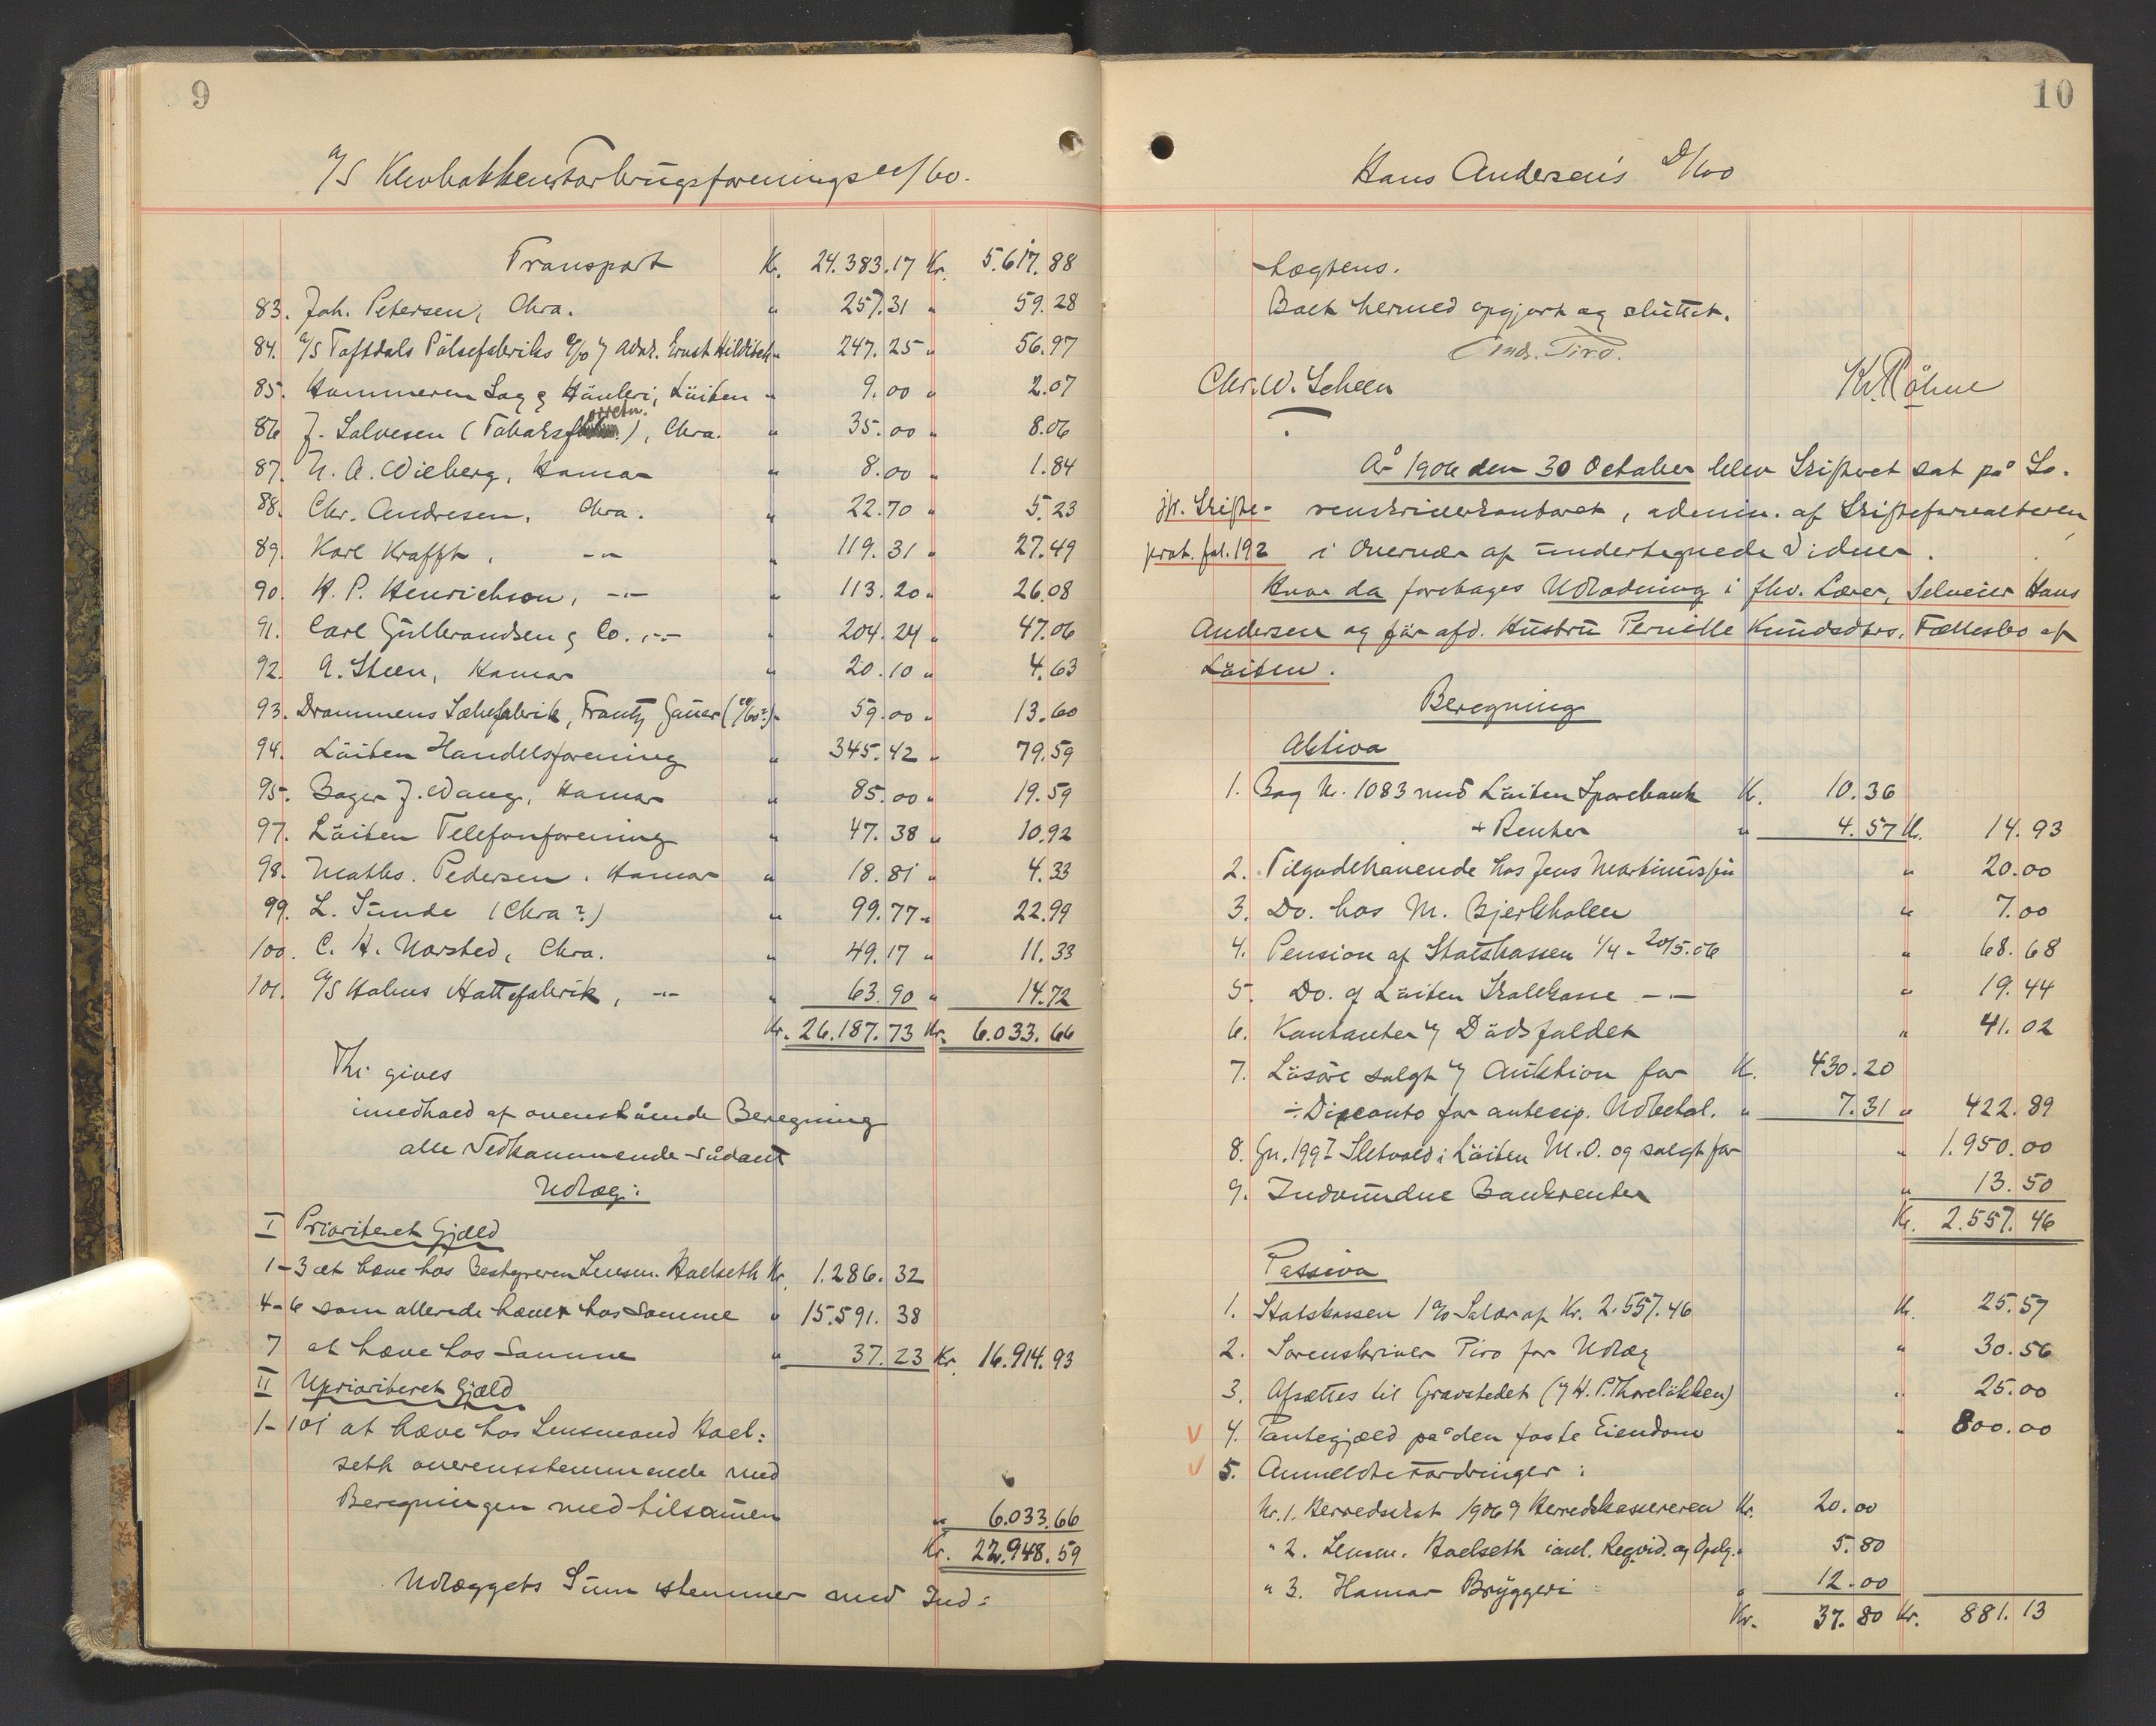 9
A/S Klevbakkens Forbrugsforenings
Transport Kr. 24.383.17 Kr. 5.617.88
83. Joh. Petersen, Chra. " 257.31 " 59.28
84. A/S Toftdals Pölsefabriks % v/ Adv. Ernst Hilditch " 247.25 " 56.97
85. Hammeren Sag & Hövleri, Löiten " 9.00 " 2.07
86 J. Salvesen (Tobaksforretn.), Chra. " 35.00 " 8.06
87. N. A. Wieberg, Hamar " 8.00 " 1.84
88. Chr. Andresen, Chra. " 22.70 " 5.23
89. Karl Krafft, -"- " 119.31 " 27.49
90. H. P. Henrichson, -"- " 113.20 " 26.08
91. Carl Gulbrandsen & Co. -"- " 204.24 " 47.06
92. A. Steen, Hamar " 20.10 " 4.63
93. Drammens Sæbefabrik, Frantz Gauer " 59.00 " 13.60
94. Löiten Handelsforening " 345.42 " 79.59
95. Bager J. Wang, Hamar " 85.00 " 19.59
97. Löiten Telefonforening " 47.38 " 10.92
98. Maths. Pedersen, Hamar " 18.81 " 4.33
99. L. Sunde (Chra?) " 99.77 " 22.99
100. C. H. Norsted, Chra. " 49.17 " 11.33
101. A/S Holms Hattefabrik, -"- " 63.90 " 14.72
Kr. 26.187.73 Kr. 6.033.66
Thi gives
imedhold af ovenstående Beregning
alle Vedkommende sådant
Udlæg:
I Prioriteret Gjæld
1-3 at hæve hos Bestyreren Lensm. Hoelseth Kr. 1.286.32
4-6 som allerede hævet hos Samme " 15.591.38
7 at hæve hos Samme " 37.23 Kr. 16.914.93
II Uprioriteret Gjæld
1-101 at hæve hos Lensmand Hoel=
seth overensstemmende med
Beregningen med tilsamen " 6.033.66
Kr. 22.948.59
Udlæggets Sum stemmer med Ind=
10
Hans Andersen's D/bo
tægtens.
Boet hermed opgjort og sluttet.
Andr. Piro.
Chr. W. Scheen Kr. Röhne
År 1906 den 30 October blev Skifteret sat på So=
jfr. Skifte- renskriverkontoret, admin. af Skifteforvalteren
prot. fol. 192 i Overvær af undertegnede Vidner.
Hvor da foretages Udlodning i fhv. Lærer, Selveier Hans
Andersen og för afd. Hustru Pernille Knudsdtrs. Fællesbo af
Löiten.
Beregning
Aktiva
1. Bog Nr. 1083 med Löiten Sparebank Kr. 10.36
+ Renter " 4.57 Kr. 14.93
2. Tilgodehavende hos Jens Martinussen " 20.00
3. Do. hos M. Bjerkholen " 7.00
4. Pension af Statskassen 1/4 - 20/5.06 " 68.68
5. Do. af Löiten Skolekasse -"- " 19.44
6. Kontanter v/ Dödsfaldet " 41.02
7. Lösöre solgt v/ Auktion for Kr. 430.20
÷ Disconto for antecip. Udbetal. " 7.31 " 422.89
8. Gn. 199 Sletvold i Löiten M.O. og solgt for " 1.950.00
9. Indvundne Bankrenter " 13.50
Kr. 2.557.46
Passiva
1. Statskassen 1% Salær af Kr. 2.557.46 Kr. 25.57
2. Sorenskriver Piro for Udlæg " 30.56
3. Afsættes til Gravstedet (v/ H. P. Thorelökken) " 25.00
v 4. Pantegjæld på den faste Eiendom " 800.00
v 5. Anmeldte Fordringer:
Nr. 1. Herredsskat 1906 v/ Herredskassereren Kr. 20.00
" 2. Lensm. Hoelseth " 5.80
" 3. Hamar Bryggeri " 12.00
Kr. 37.80 Kr. 881.13